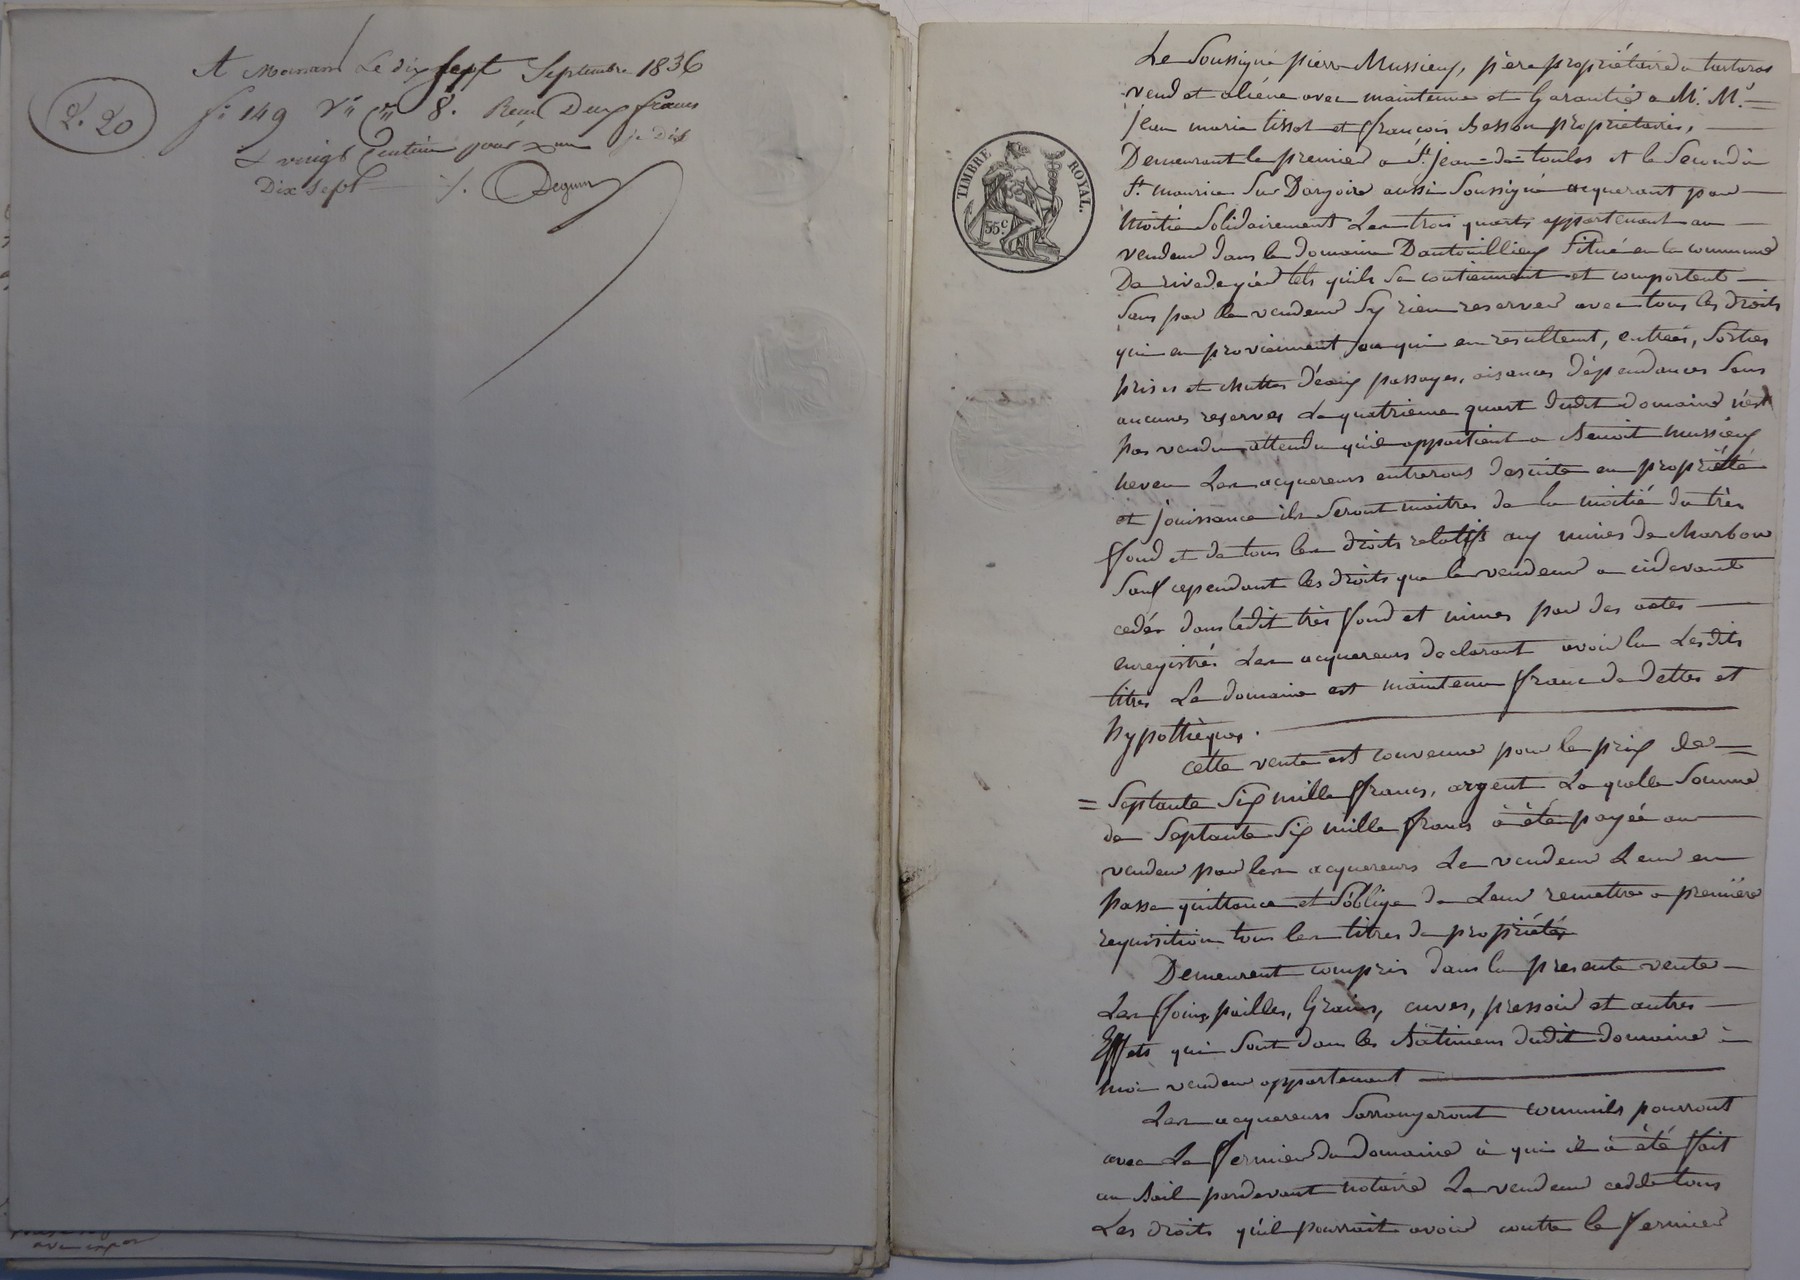 A Mornant Le dix sept Septembre 1836
2.20
f° 149 V° Cn 8. Recu Deux francs
& vingt Centimes pour le Dix
Dix sept
Deguin
TIMBRE ROYAL.
55 c.
Le Soussigné pierre Mussieux, père propriétaire a tartaras
vend et aliène avec maintenue et Garantie a M.r M.r =
jean marie tissot et françois Besson propriétaires,
Demeurant le premier a St. jean-de-toulas et le Second a
St. maurice Sur Dargoire aussi Soussigné acquerant par
moitié Solidairement Les trois quarts appartenant au
vendeur dans le domaine Dantouillieux Situé en la commune
De rivedegier tels qu'ils se contiennent et comportent
Sans par le vendeur Sy rien reserver avec tous les droits
qui en proviennent ou qui en resultent, entrées, Sorties
prises et chuttes d'eaux passages, aisances dépendances Sans
aucunes reserves Le quatrieme quart dudit domaine n'est
pas vendu attendu qu'il appartient a Benoit mussieux
neveu Les acquereurs entreront desuite en propriété
et jouissance ils Seront maitres de la moitié du très
fond et de tous les droits relatifs aux mines de charbon
Sauf cependant les droits que le vendeur a cidevant
cedés dans ledit très fond et mines par des actes
enregistrés Les acquereurs declarent avoir lu Lesdits
titres Le domaine est maintenu franc de dettes et
hypothèques.
cette vente est convenue pour le prix de =
= Septante Six mille francs, argent La quelle Somme
de Septante Six mille francs à été payée au
vendeur par les acquereurs Le vendeur Leur en
passe quittance et S'oblige de Leur remettre a première
requisition tous les titres de propriétés
Demeurent compris dans la presente vente
Les foins, pailles, Grains, cuves, pressoir et autres
Effets qui Sont dans les Bâtimens dudit domaine à
moi vendeur appartenant
Les acquereurs S'arrangeront comm'ils pourront
avec Le fermier du domaine à qui il à été fait
un Bail pardevant notaire Le vendeur cedde tous
Les droits qu'il pourrait avoir contre le fermier